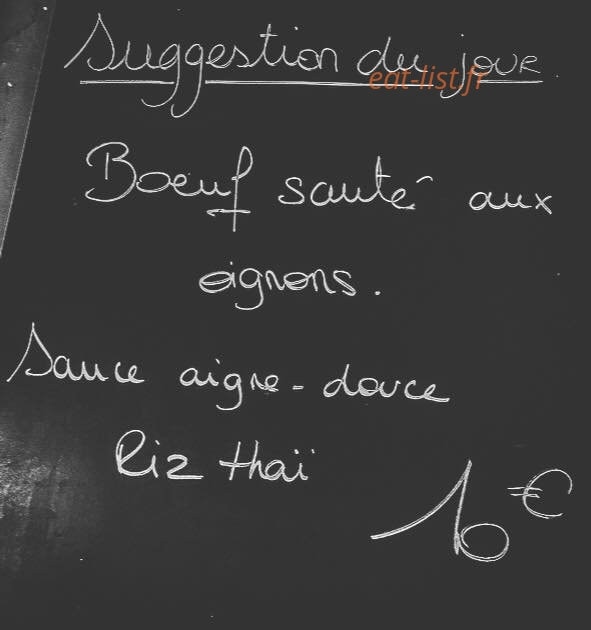 Suggestion du jour
eat-list.fr
Boeuf sauté aux
oignons.
Sauce aigre-douce
Riz thaï
16 €